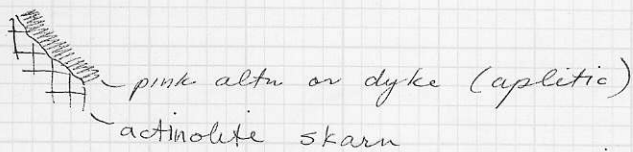 pink altn or dyke (aplitic)
actinolite skarn